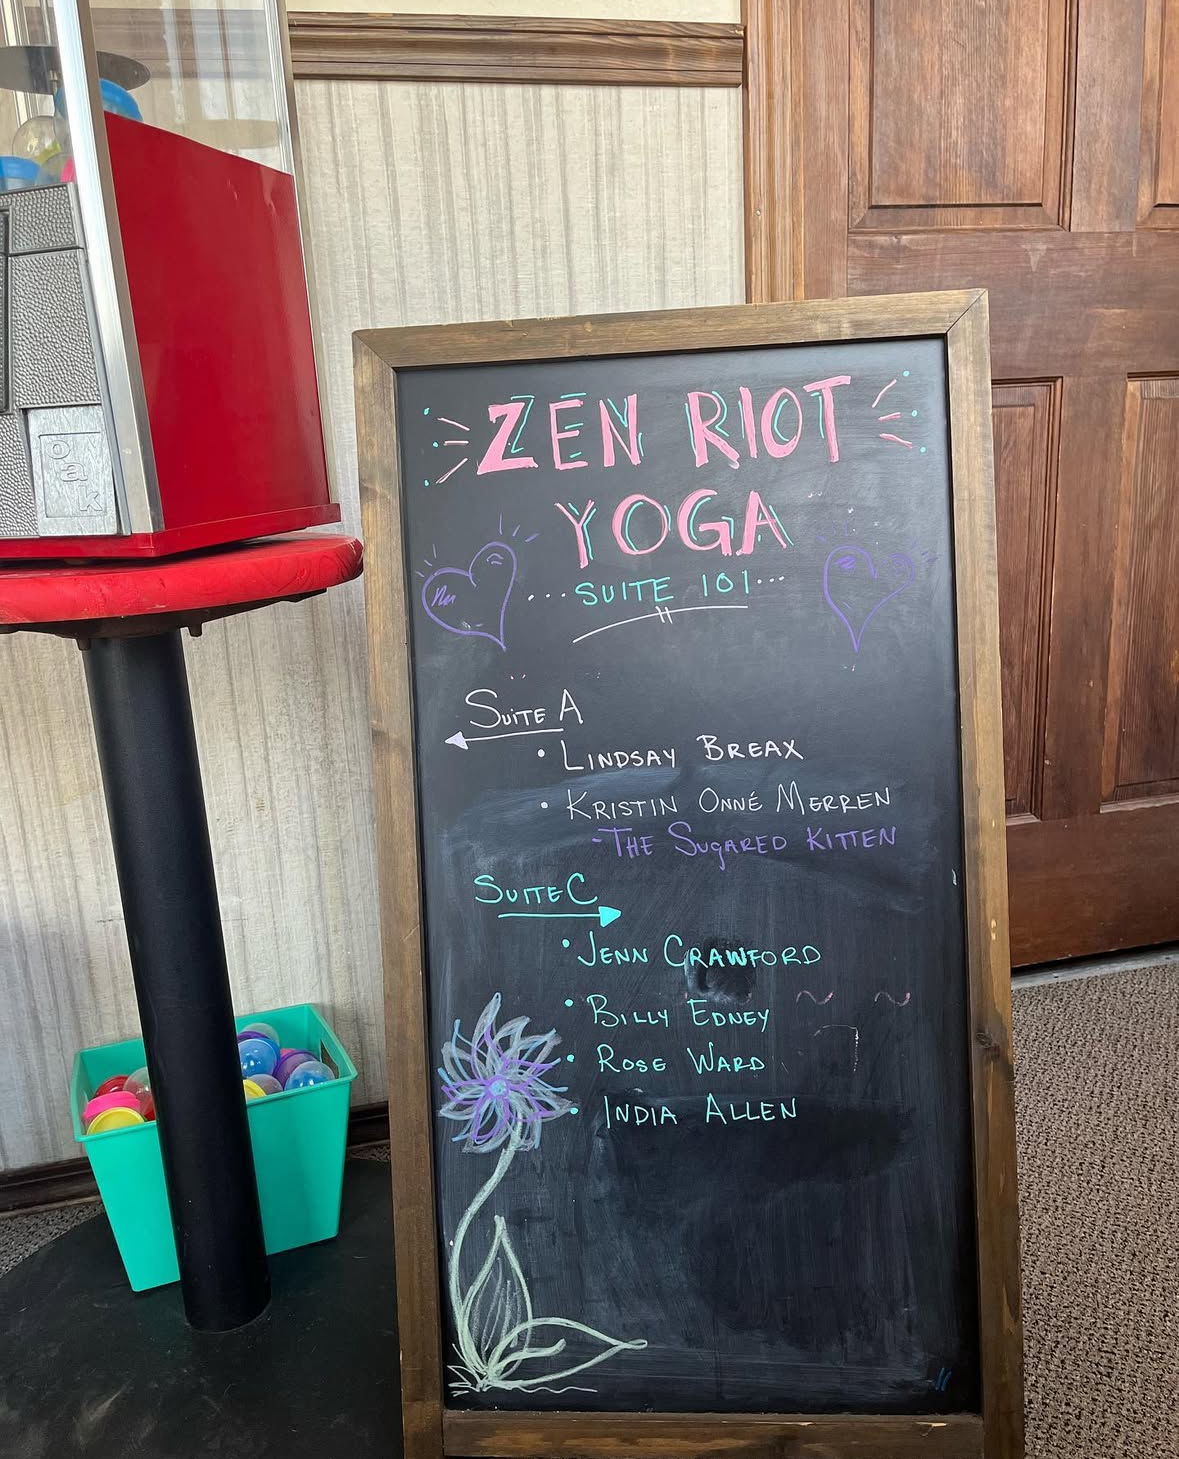 oak
ZEN RIOT
YOGA
...SUITE 101...
SUITE A
• LINDSAY BREAX
• KRISTIN ONNÉ MERREN
-THE SUGARED KITTEN
SUITE C
• JENN CRAWFORD
• BILLY EDNEY
• ROSE WARD
• INDIA ALLEN